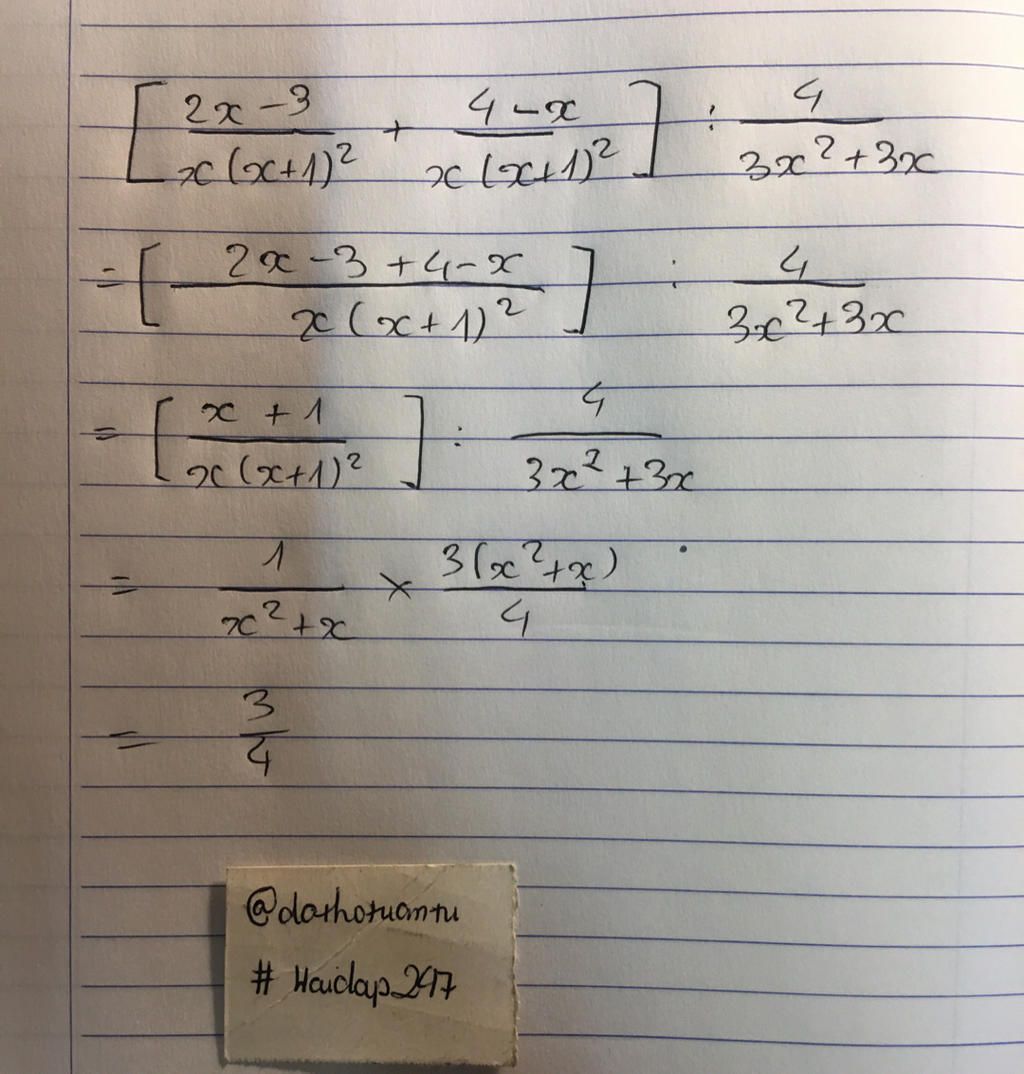 [ (2x - 3)/(x(x+1)²) + (4 - x)/(x(x+1)²) ] : 4/(3x² + 3x)
= [ (2x - 3 + 4 - x)/(x(x+1)²) ] : 4/(3x² + 3x)
= [ (x + 1)/(x(x+1)²) ] : 4/(3x² + 3x)
= 1/(x² + x) × 3(x² + x)/4
= 3/4
@dothotuantu
# Haiclap_247